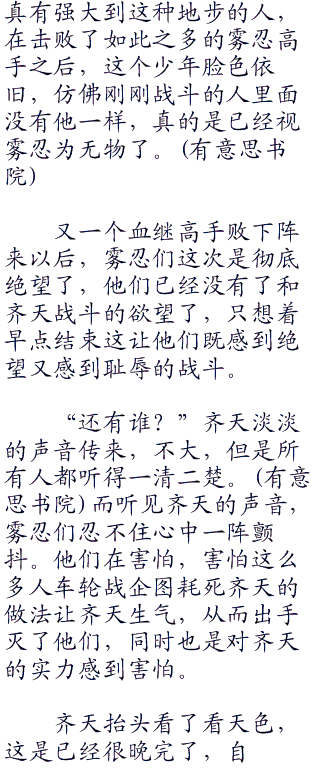 真有强大到这种地步的人，
在击败了如此之多的雾忍高
手之后，这个少年脸色依
旧，仿佛刚刚战斗的人里面
没有他一样，真的是已经视
雾忍为无物了。(有意思书
院)
又一个血继高手败下阵
来以后，雾忍们这次是彻底
绝望了，他们已经没有了和
齐天战斗的欲望了，只想着
早点结束这让他们既感到绝
望又感到耻辱的战斗。
“还有谁？”齐天淡淡
的声音传来，不大，但是所
有人都听得一清二楚。(有意
思书院)而听见齐天的声音，
雾忍们忍不住心中一阵颤
抖。他们在害怕，害怕这么
多人车轮战企图耗死齐天的
做法让齐天生气，从而出手
灭了他们，同时也是对齐天
的实力感到害怕。
齐天抬头看了看天色，
这是已经很晚完了，自